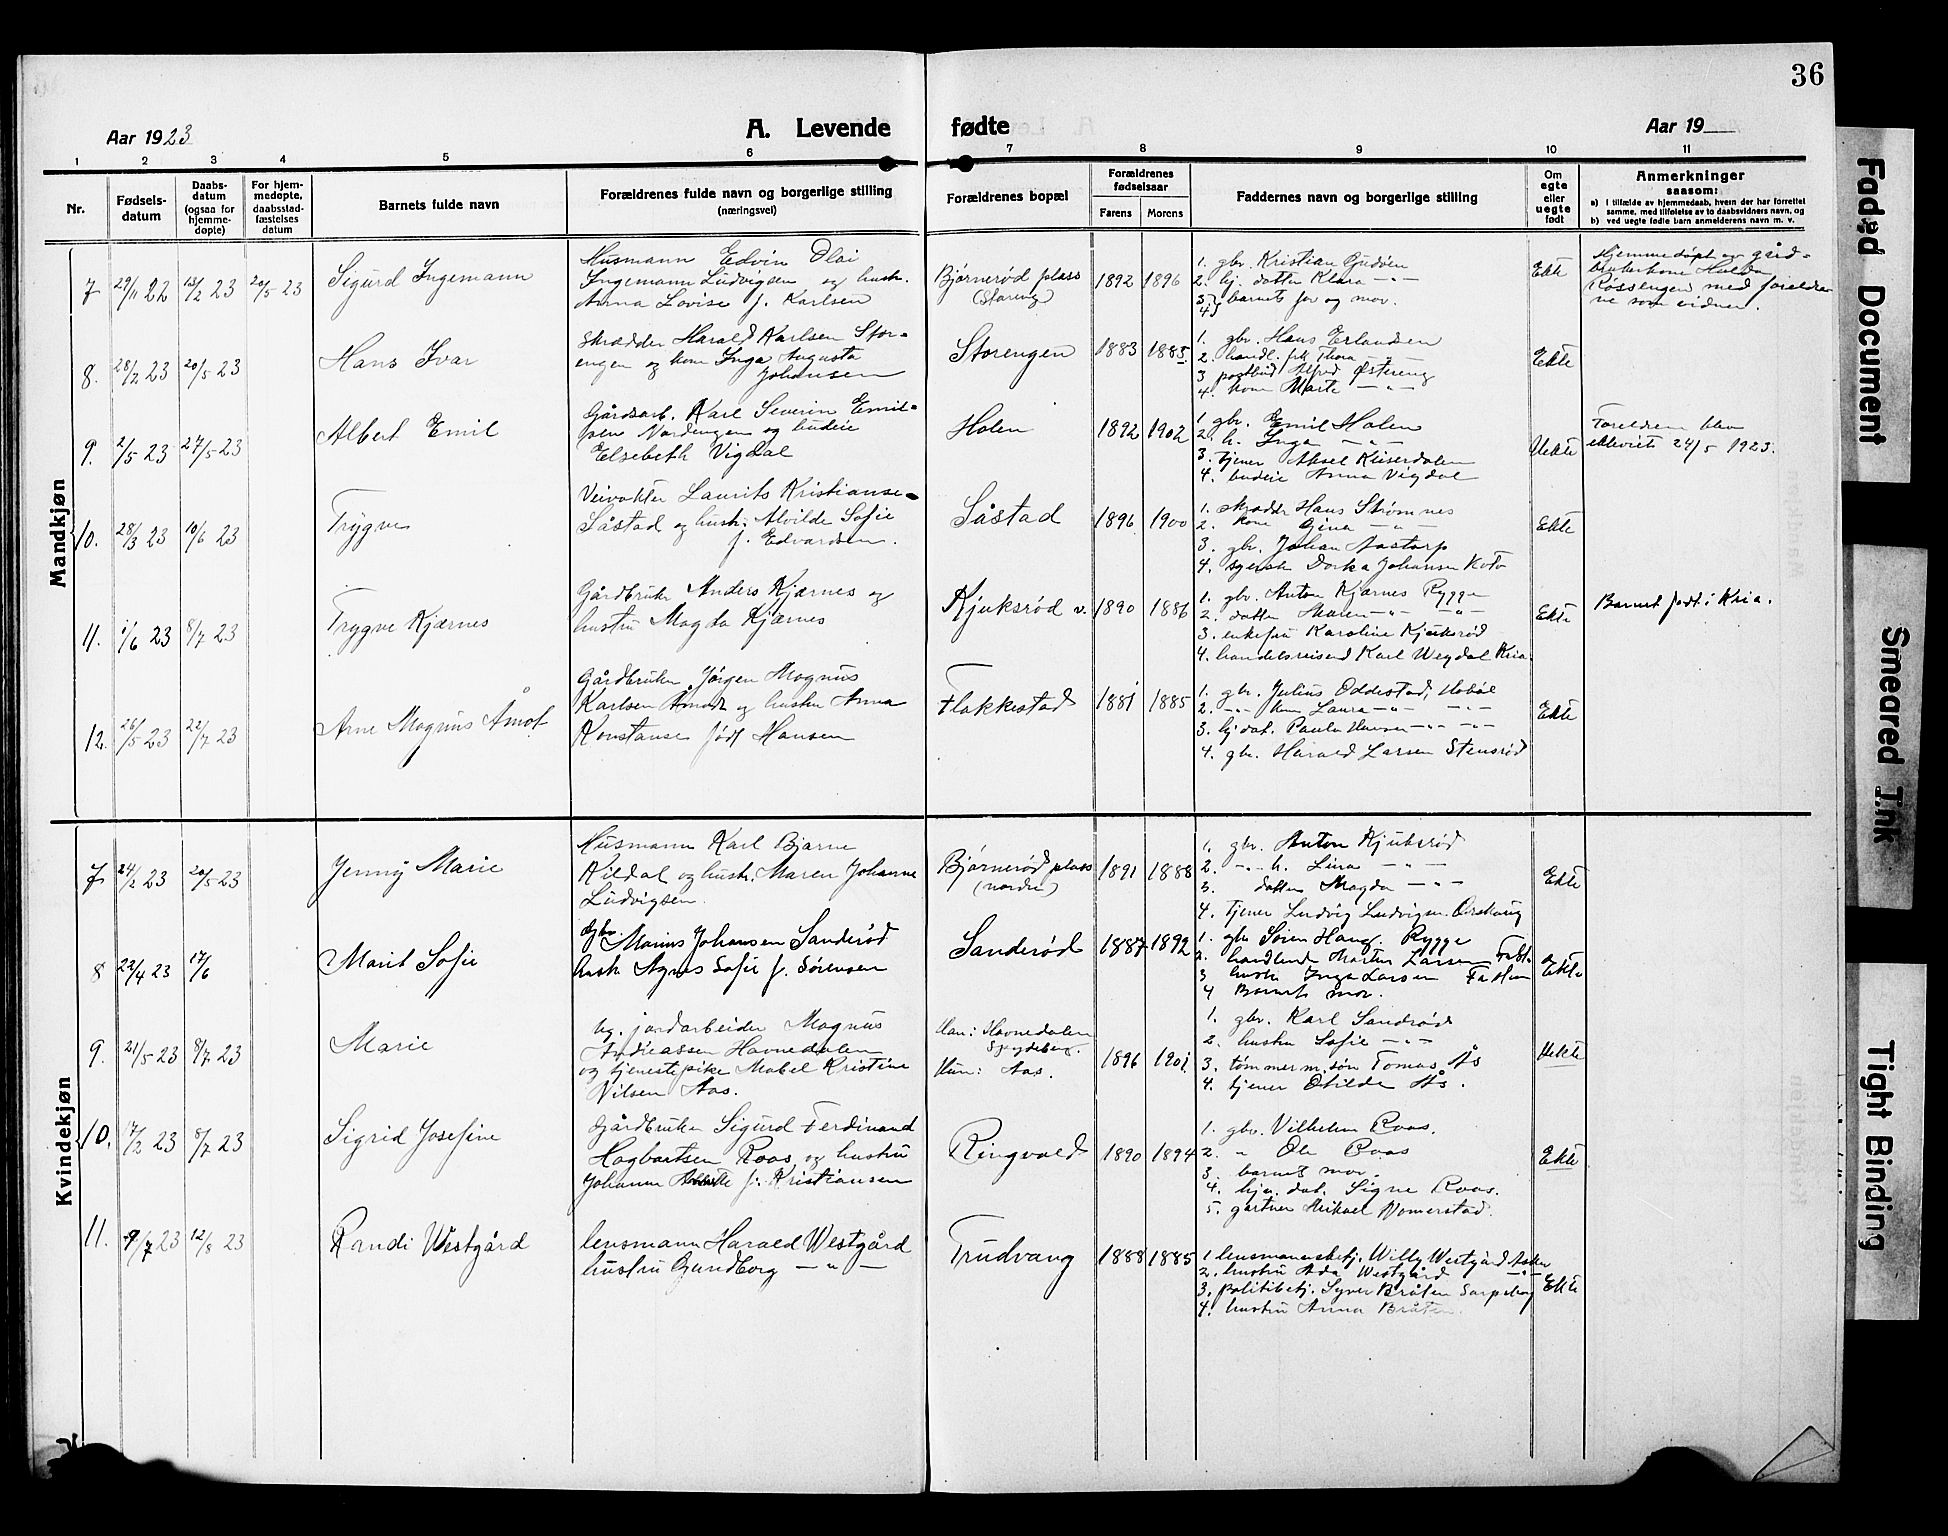 36
Aar 1923
A. Levende fødte
Aar 19
1 2 3 4 5 6 7 8 9 10 11
Nr.
Fødsels-
datum
Daabs-
datum
(ogsaa for
hjemme-
døpte)
For hjem-
medøpte,
daabsstad-
fæstelses
datum
Barnets fulde navn
Forældrenes fulde navn og borgerlige stilling
(næringsvei)
Forældrenes bopæl
Forældrenes
fødselsaar
Farens Morens
Faddernes navn og borgerlige stilling
Om
egte
eller
uegte
født
Anmerkninger
saasom:
a) I tilfælde av hjemmedaab, hvem der har forrettet
samme, med tilføielse av to daabsvidners navn, og
b) ved uegte fødte barn anmelderens navn m. v.
Mandkjøn
7 29/11 22 13/2 23 20/5 23
Sigurd Ingemann
Husmann Edvin Olai
Ingemann Ludvigsen og hustr.
Anna Lovise f. Karlsen
Bjørnerød plass
1892 1896
1. gbr. Kristian
2. hj. datter Klara — " —
3} barnets far og mor.
4}
Ekte
Hjemmedøpt av gård-
brukerkone Hulda
Røssengen med foreldre-
ne som vidner.
8. 28/2 23 20/5 23
Hans Ivar
Skrædder Harald Karlsen Stor-
engen og kone Inga Augusta
Johansen
Storengen
1883 1885.
1. gbr. Hans Erlandsen
2. handl. frk Thora — " —
3 postbud Alfred Østereng
4. kone Marte — " —
Ekte
9. 2/5 23 27/5 23
Albert Emil
Gårdsarb. Karl Severin Emil-
sen Nordengen og budeie
Elsebeth Vigdal
Holen
1892 1902
1. gbr. Emil Holen
2. h. Inga — " —
3. tjener Aksel
4. budeie Anna Vigdal
Uekte
Foreldrene blev
ekteviet 24/5 1923.
10. 28/3 23 10/6 23
Trygve
Veivokter Laurits Kristianse-
Såstad og hustr. Alvilde Sofie
f. Edvardsen.
Såstad
1896 1900
1. skrædder Hans Strømnes
2. kone Gina — " —
3. gbr. Johan Aastorp
4. syerske Dorka Johansen
Ekte
11. 1/6 23 8/7 23
Trygve Kjærnes
Gårdbruker Anders Kjærnes og
hustru Magda Kjærnes
Kjuksrød v.
1890 1886
1. gbr. Anton Kjærnes Rygge
2. datter Maren — " — — " —
3. enkefru Karoline Kjuksrød
4. handelsreisend Karl Wegdal Kria.
Ekte
Barnet født i Kria.
12. 26/5 23 22/7 23
Arne Magnus Åmot
Gårdbruker Jørgen Magnus
Karlsen Åmodt og hustru Anna
Konstanse født Hansen
Flakkestad
1881 1885
1. gbr. Julius Oddestad, Hobøl
2. — " — kone Laura — " — — " —
3. hj. dat. Paula Hansen — " — — " —
4. gbr. Harald Larsen Stensrød
Ekte
Kvindekjøn
7 24/2 23 20/5 23
Jenny Marie
Husmann Karl Bjarne
Kildal og hustr. Maren Johanne
Ludvigsen.
Bjørnerød plass
(nordre)
1891 1888
1. gbr. Anton Kjuksrød
2. — " — h. Lina — " —
3. datter Magda — " —
4. tjener Ludvig Ludvigsen
Ekte
8 23/4 23 17/6
Marit Sofie
Gbr. Marius Johansen Sanderød
hustr. Agnes Sofie f. Sørensen
Sanderød
1887 1892
1. gbr Søren Haug. Rygge
2. handlende Martin Larsen
3 hustr. Inga Larsen
4 Barnets mor.
Ekte
9. 21/5 23 8/7 23
Marie
Ug. jordarbeider Magnus
Andreassen Havnedalen
og tjenestepike Mabel Kristine
Nilsen Aas.
Han: Havnedalen
Spydeberg.
Hun: Aas.
1896 1901
1. gbr. Karl Sandrød
2. hustru Sofie — " —
3. tømmerm. søn Tomas Ås
4. tjener Otilde Ås.
Uekte
10. 17/2 23 8/7 23
Sigrid Josefine
Gårdbruker Sigurd Ferdinand
Hagbartsen Roos og hustru
Johanne f. Kristiansen
Ringvold
1890 1894
1. gbr. Vilhelm Roos.
2. " Ole Roos
3. barnets mor.
4. hjv. dat. Signe Roos.
5. gartner Mikael Nomerstad.
Ekte
11. 9/7 23 12/8 23
Randi Westgård
lensmann Harald Westgård
hustru Gundborg — " —
Trudvang
1888 1885
1 lensmannsbetj. Willy Westgård Asker
2. hustru Ada Westgård — " —
3. politibetj. Syver Bråten Sarpsborg
4. hustru Anna Bråten.
Ekte
Faded Document
Smeared Ink
Tight Binding